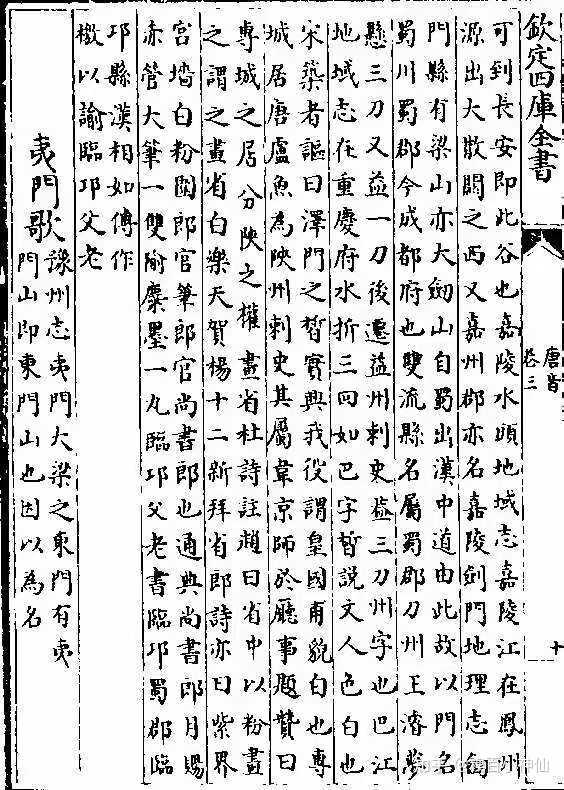 欽定四庫全書
唐音
卷三
十
可到長安即此谷也嘉陵水頭地域志嘉陵江在鳳州
源出大散關之西又嘉州郡亦名嘉陵劍門地理志劍
門縣有梁山亦大劒山自蜀出漢中道由此故以門名
蜀川蜀郡今成都府也雙流縣名屬蜀郡刀州王濬夢
懸三刀又益一刀後遷益州刺史葢三刀州字也巴江
地域志在重慶府水折三回如巴字晳說文人色白也
宋築者謳曰澤門之晳實興我役謂皇國甫貌白也專
城居唐盧魚為陜州刺史其屬韋京師於廳事題贊曰
專城之居分陜之權畫省杜詩註趙曰省中以粉畫
之謂之畫省白樂天賀楊十二新拜省郎詩亦曰紫界
宮墻白粉闈郎官筆郎官尚書郎也通典尚書郎月賜
赤管大筆一雙隃麋墨一丸臨邛父老書臨邛蜀郡臨
邛縣漢相如傳作
檄以諭臨邛父老
夷門歌
豫州志夷門大梁之東門有夷
門山即東門山也因以為名